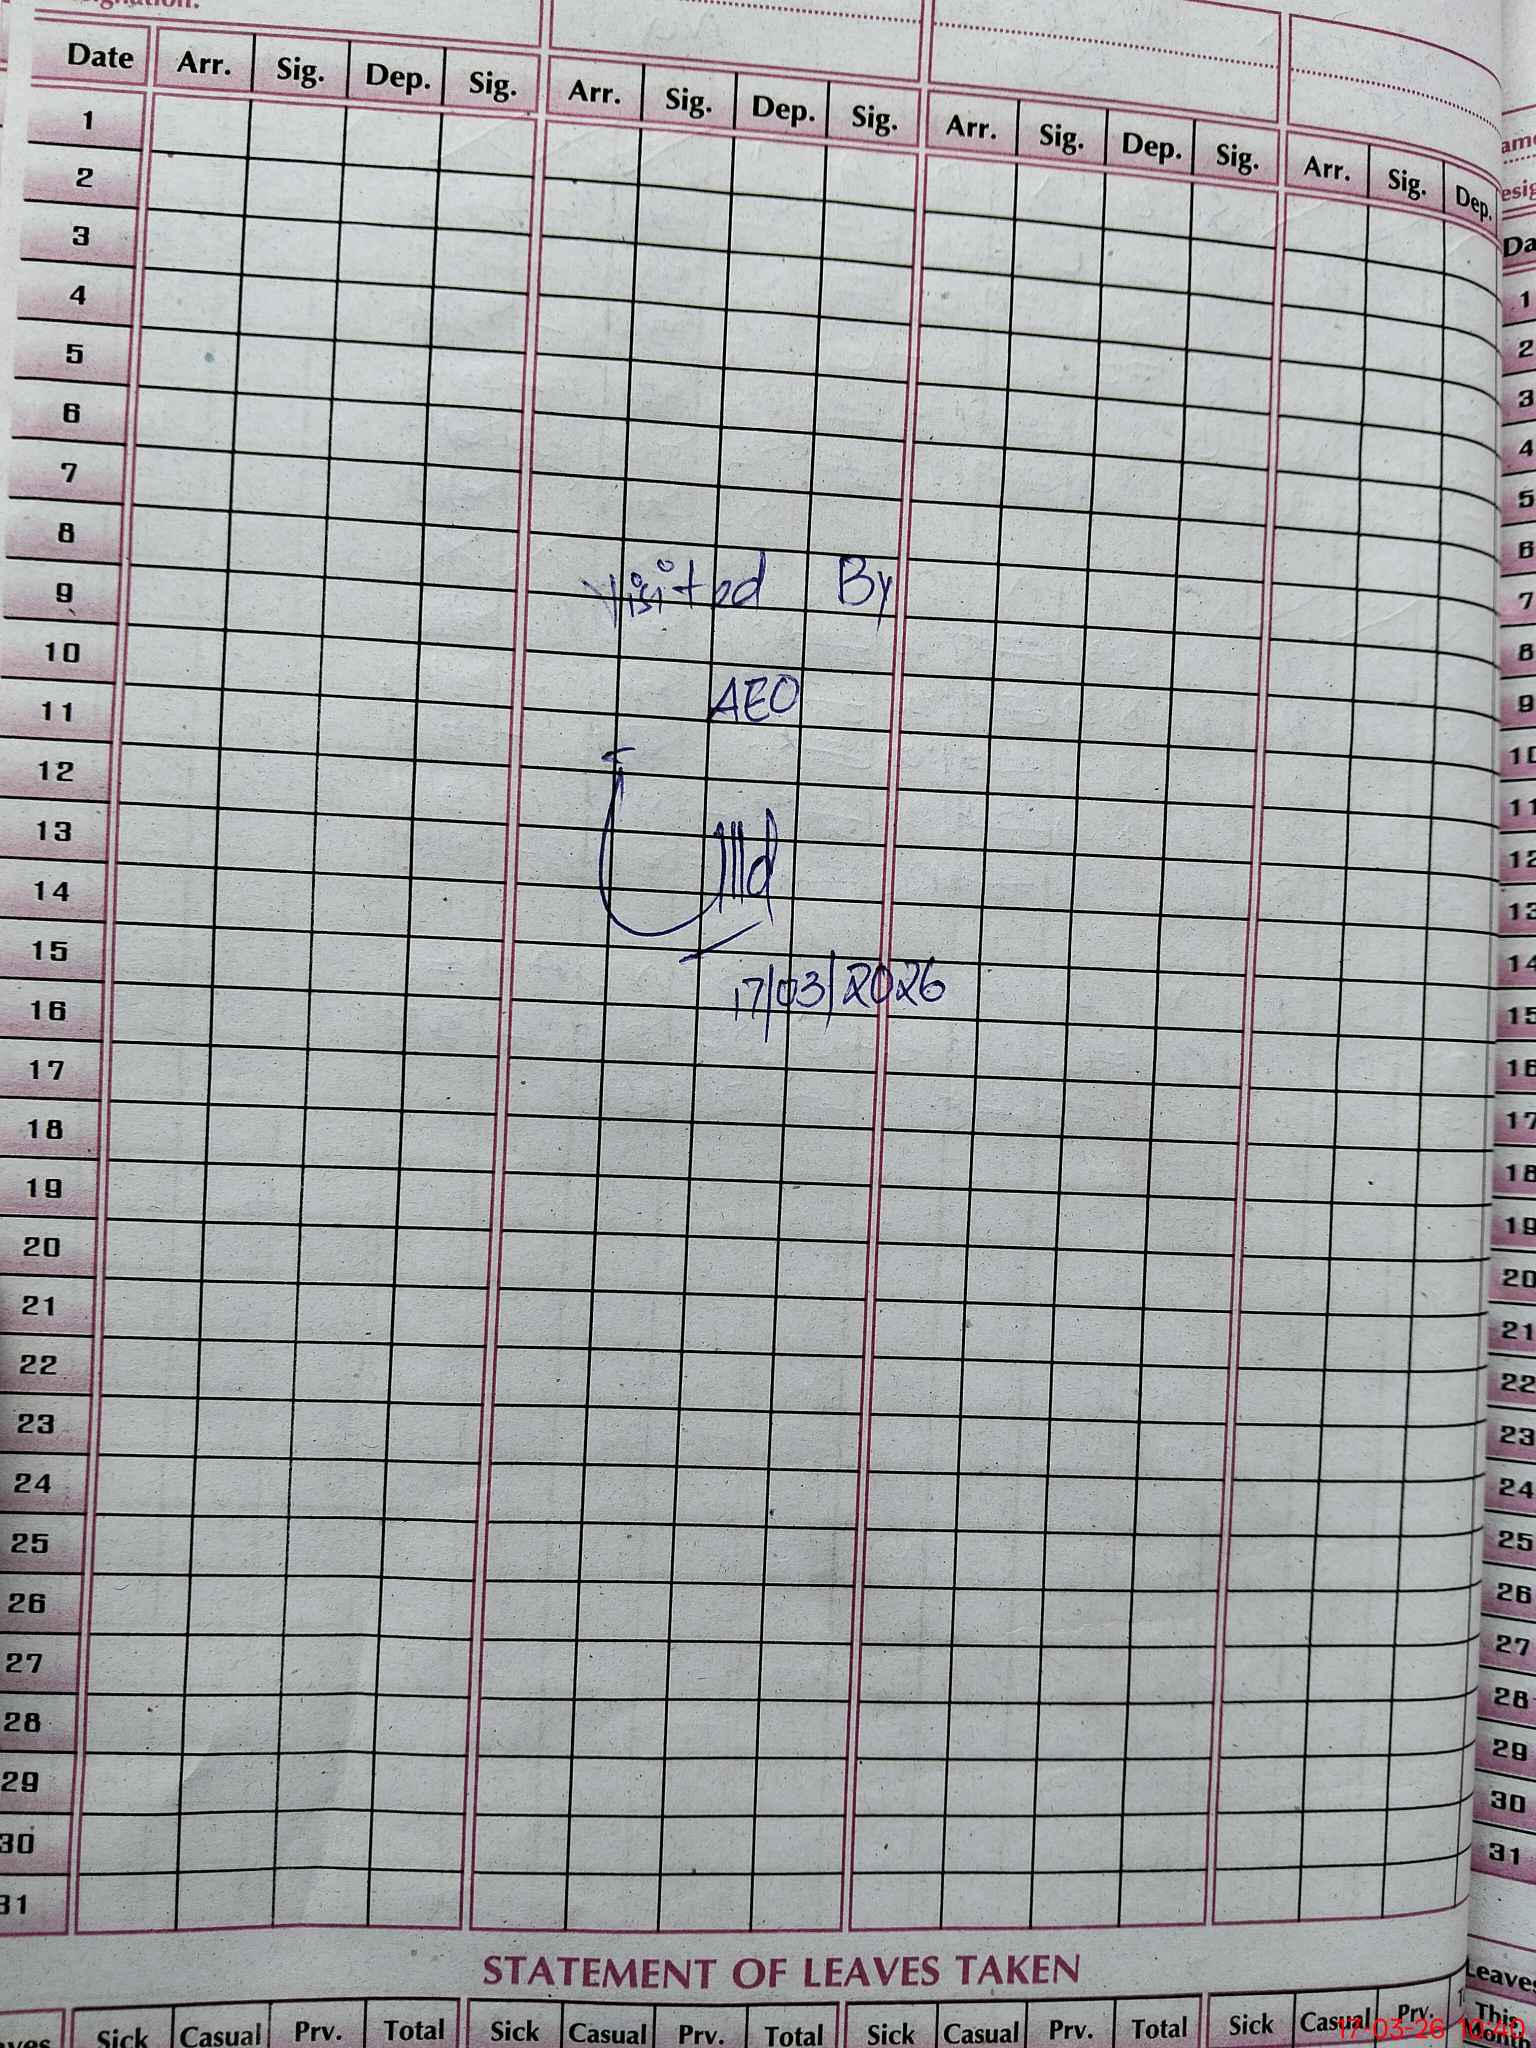 Date Arr. Sig. Dep. Sig. Arr. Sig. Dep. Sig. Arr. Sig. Dep. Sig. Arr. Sig. Dep.
1
2
3
4
5
6
7
8
9
10
11
12
13
14
15
16
17
18
19
20
21
22
23
24
25
26
27
28
29
30
31
Visited By
AEO
17/03/2026
STATEMENT OF LEAVES TAKEN
Sick Casual Prv. Total Sick Casual Prv. Total Sick Casual Prv. Total Sick Casual Prv.
Da
1
2
3
4
5
6
7
8
9
10
11
12
13
14
15
16
17
18
19
20
21
22
23
24
25
26
27
28
29
30
31
Leaves
This
Month
17-03-26 10:40